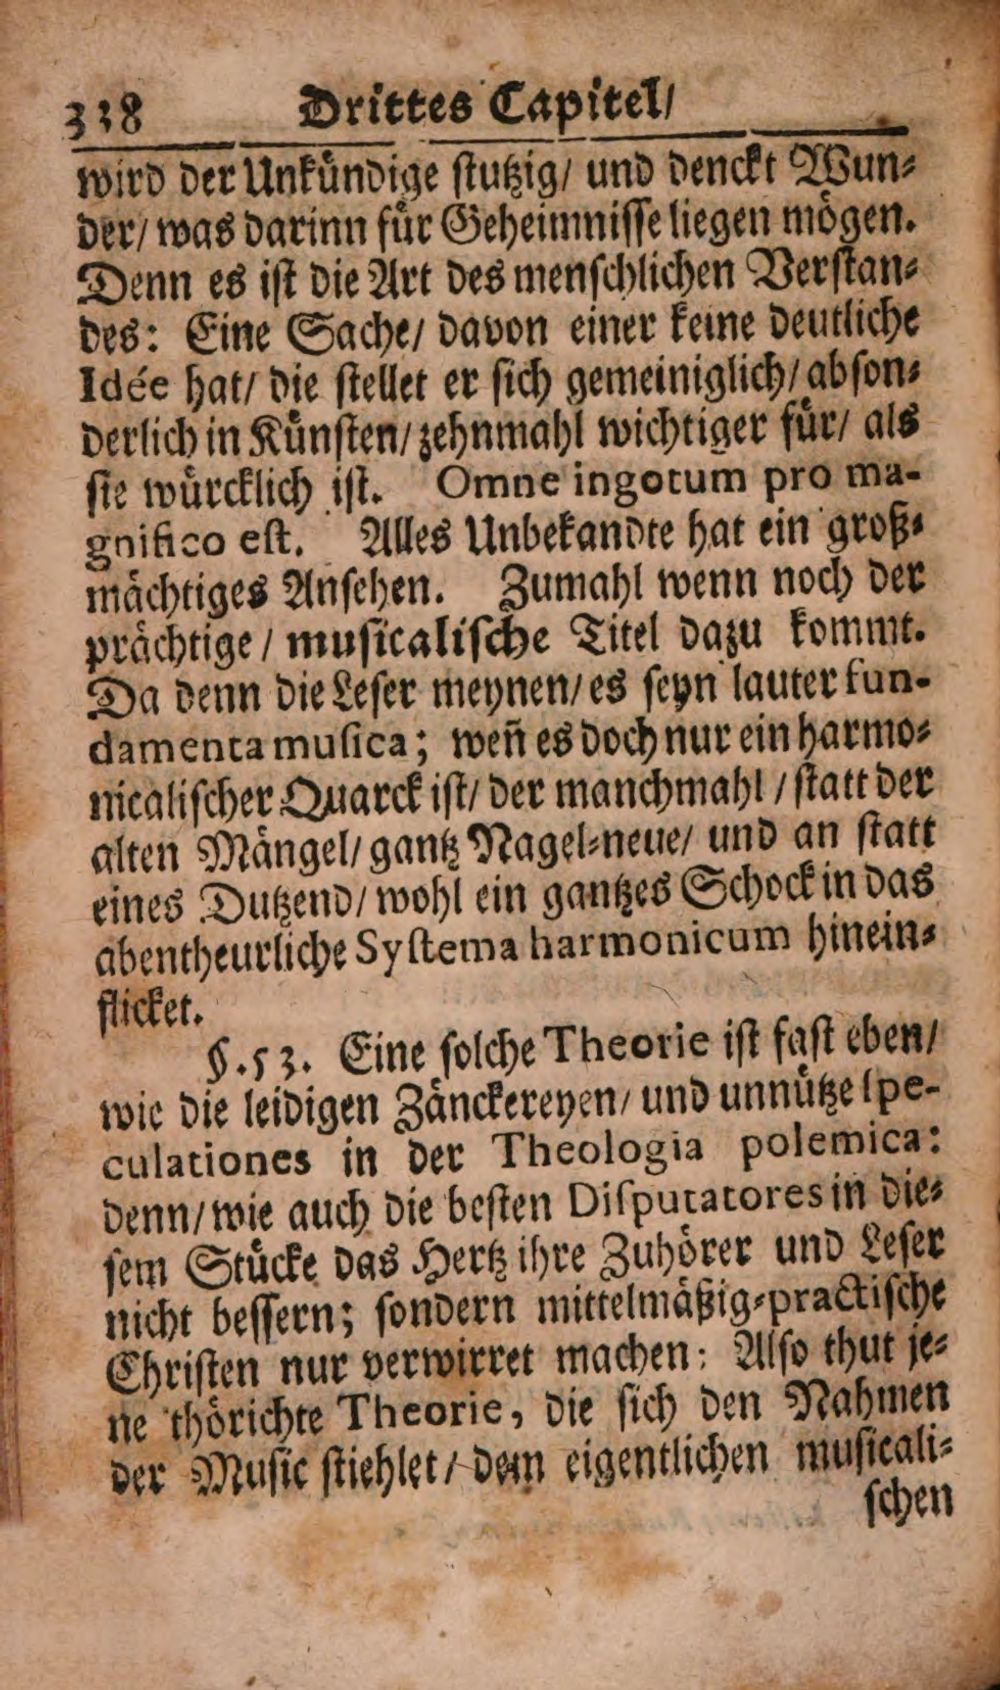 338 Drittes Capitel/
wird der Unkündige stutzig/ und denckt Wun-
der/ was darinn für Geheimnisse liegen mögen.
Denn es ist die Art des menschlichen Verstan-
des: Eine Sache/ davon einer keine deutliche
Idée hat/ die stellet er sich gemeiniglich/ abson-
derlich in Künsten/ zehnmahl wichtiger für/ als
sie würcklich ist. Omne ingotum pro ma-
gnifico est. Alles Unbekandte hat ein groß-
mächtiges Ansehen. Zumahl wenn noch der
prächtige/ musicalische Titel dazu kommt.
Da denn die Leser meynen/ es seyn lauter fun-
damenta musica; weñ es doch nur ein harmo-
nicalischer Quarck ist/ der manchmahl/ statt der
alten Mängel/ gantz Nagel-neue/ und an statt
eines Dutzend/ wohl ein gantzes Schock in das
abentheurliche Systema harmonicum hinein-
flicket.
§. 53. Eine solche Theorie ist fast eben/
wie die leidigen Zänckereyen/ und unnütze spe-
culationes in der Theologia polemica:
denn/ wie auch die besten Disputatores in die-
sem Stücke das Hertz ihre Zuhörer und Leser
nicht bessern; sondern mittelmäßig-practische
Christen nur verwirret machen: Also thut je-
ne thörichte Theorie, die sich den Nahmen
der Music stiehlet/ dem eigentlichen musicali-
schen